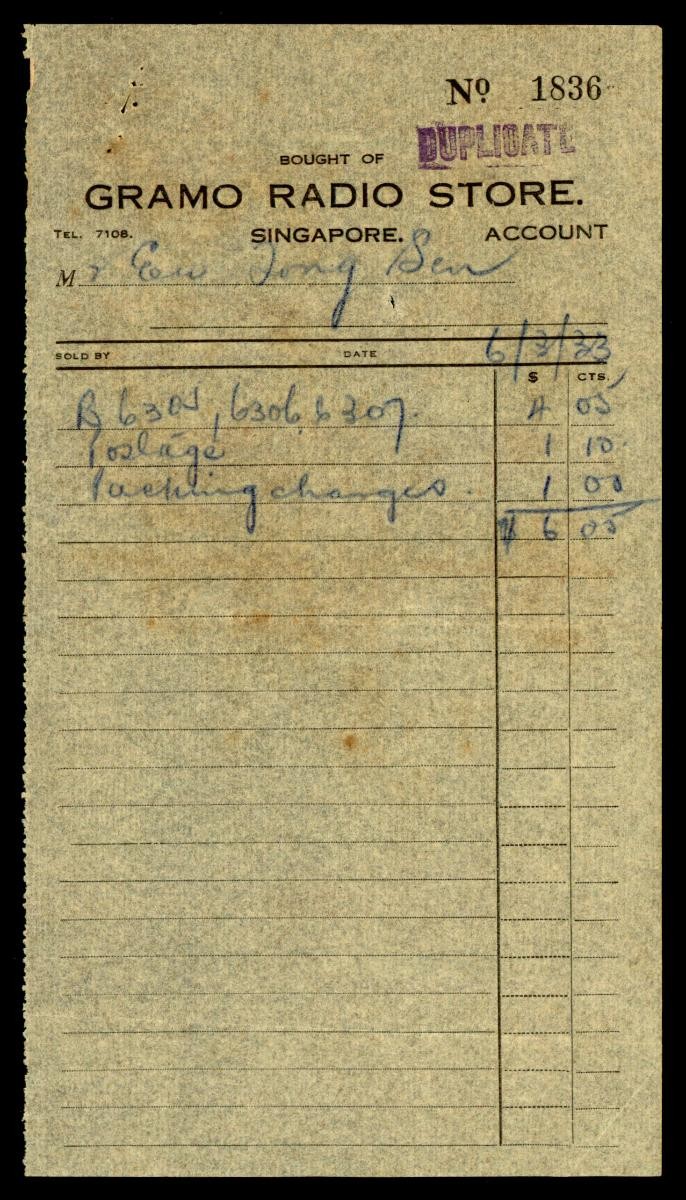 Nº 1836
DUPLICATE
BOUGHT OF
GRAMO RADIO STORE.
TEL. 7108. SINGAPORE. ACCOUNT
Mr Eu Tong Sen
SOLD BY DATE 6/3/33
$ CTS.
B 6305, 6306, 6307. 4 05
Postage 1 10
Packing charges. 1 00
$ 6 05